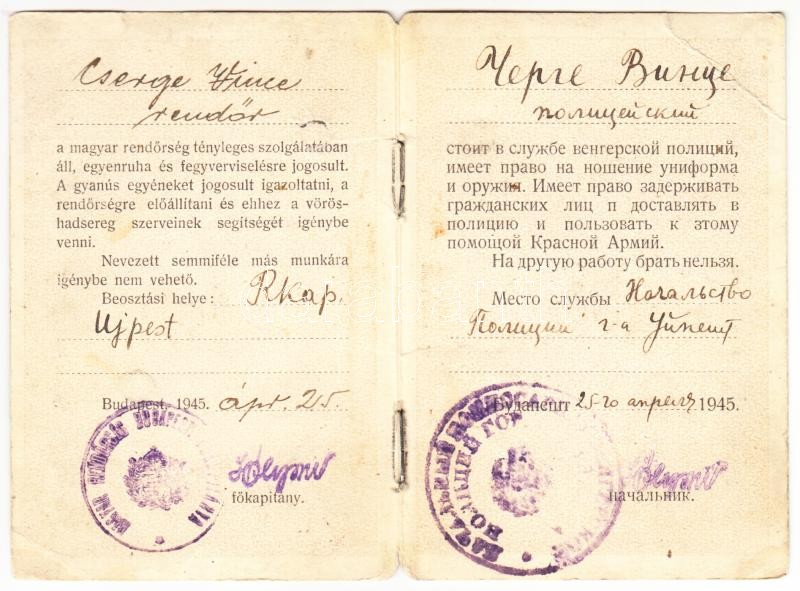 Cserge Vince
rendőr
a magyar rendőrség tényleges szolgálatában
áll, egyenruha és fegyverviselésre jogosult.
A gyanús egyéneket jogosult igazoltatni, a
rendőrségre előállítani és ehhez a vörös-
hadsereg szerveinek segítségét igénybe
venni.
Nevezett semmiféle más munkára
igénybe nem vehető.
Beosztási helye: Rkap.
Ujpest
Budapest, 1945. ápr. 25.
főkapitány.
Черге Винце
полицейский
стоит в службе венгерской полиций,
имеет право на ношение униформа
и оружия. Имеет право задерживать
гражданских лиц п доставлять в
полицию и пользовать к зтому
помощой Красной Армий.
На другую работу брать нельзя.
Место службы Начальство
Полиции г-а Уйпешт
Будапешт 25-го апреля 1945.
начальник.